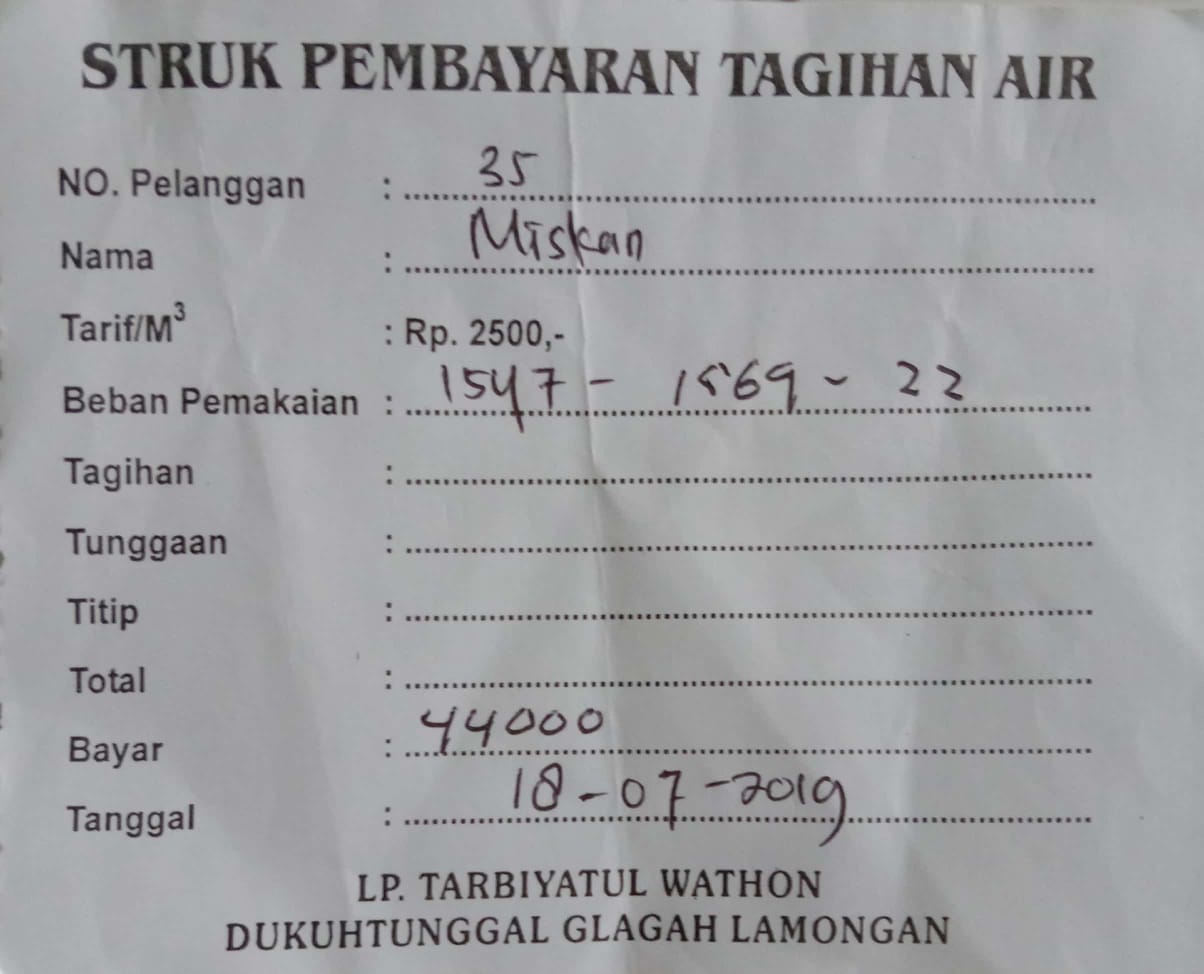 STRUK PEMBAYARAN TAGIHAN AIR
NO. Pelanggan : 35
Nama : Miskan
Tarif/M³ : Rp. 2500,-
Beban Pemakaian : 1547 - 1569 - 22
Tagihan :
Tunggaan :
Titip :
Total :
Bayar : 44000
Tanggal : 18-07-2019
LP. TARBIYATUL WATHON
DUKUHTUNGGAL GLAGAH LAMONGAN